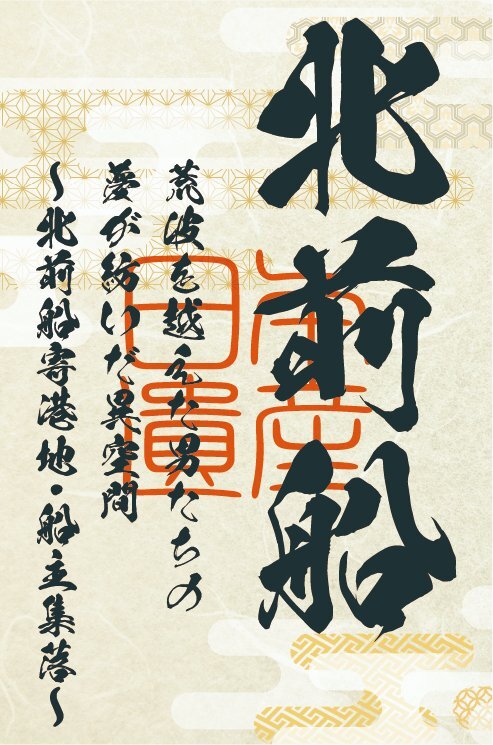 北前船
荒波を越えた男たちの
夢が紡いだ異空間
～北前船寄港地・船主集落～